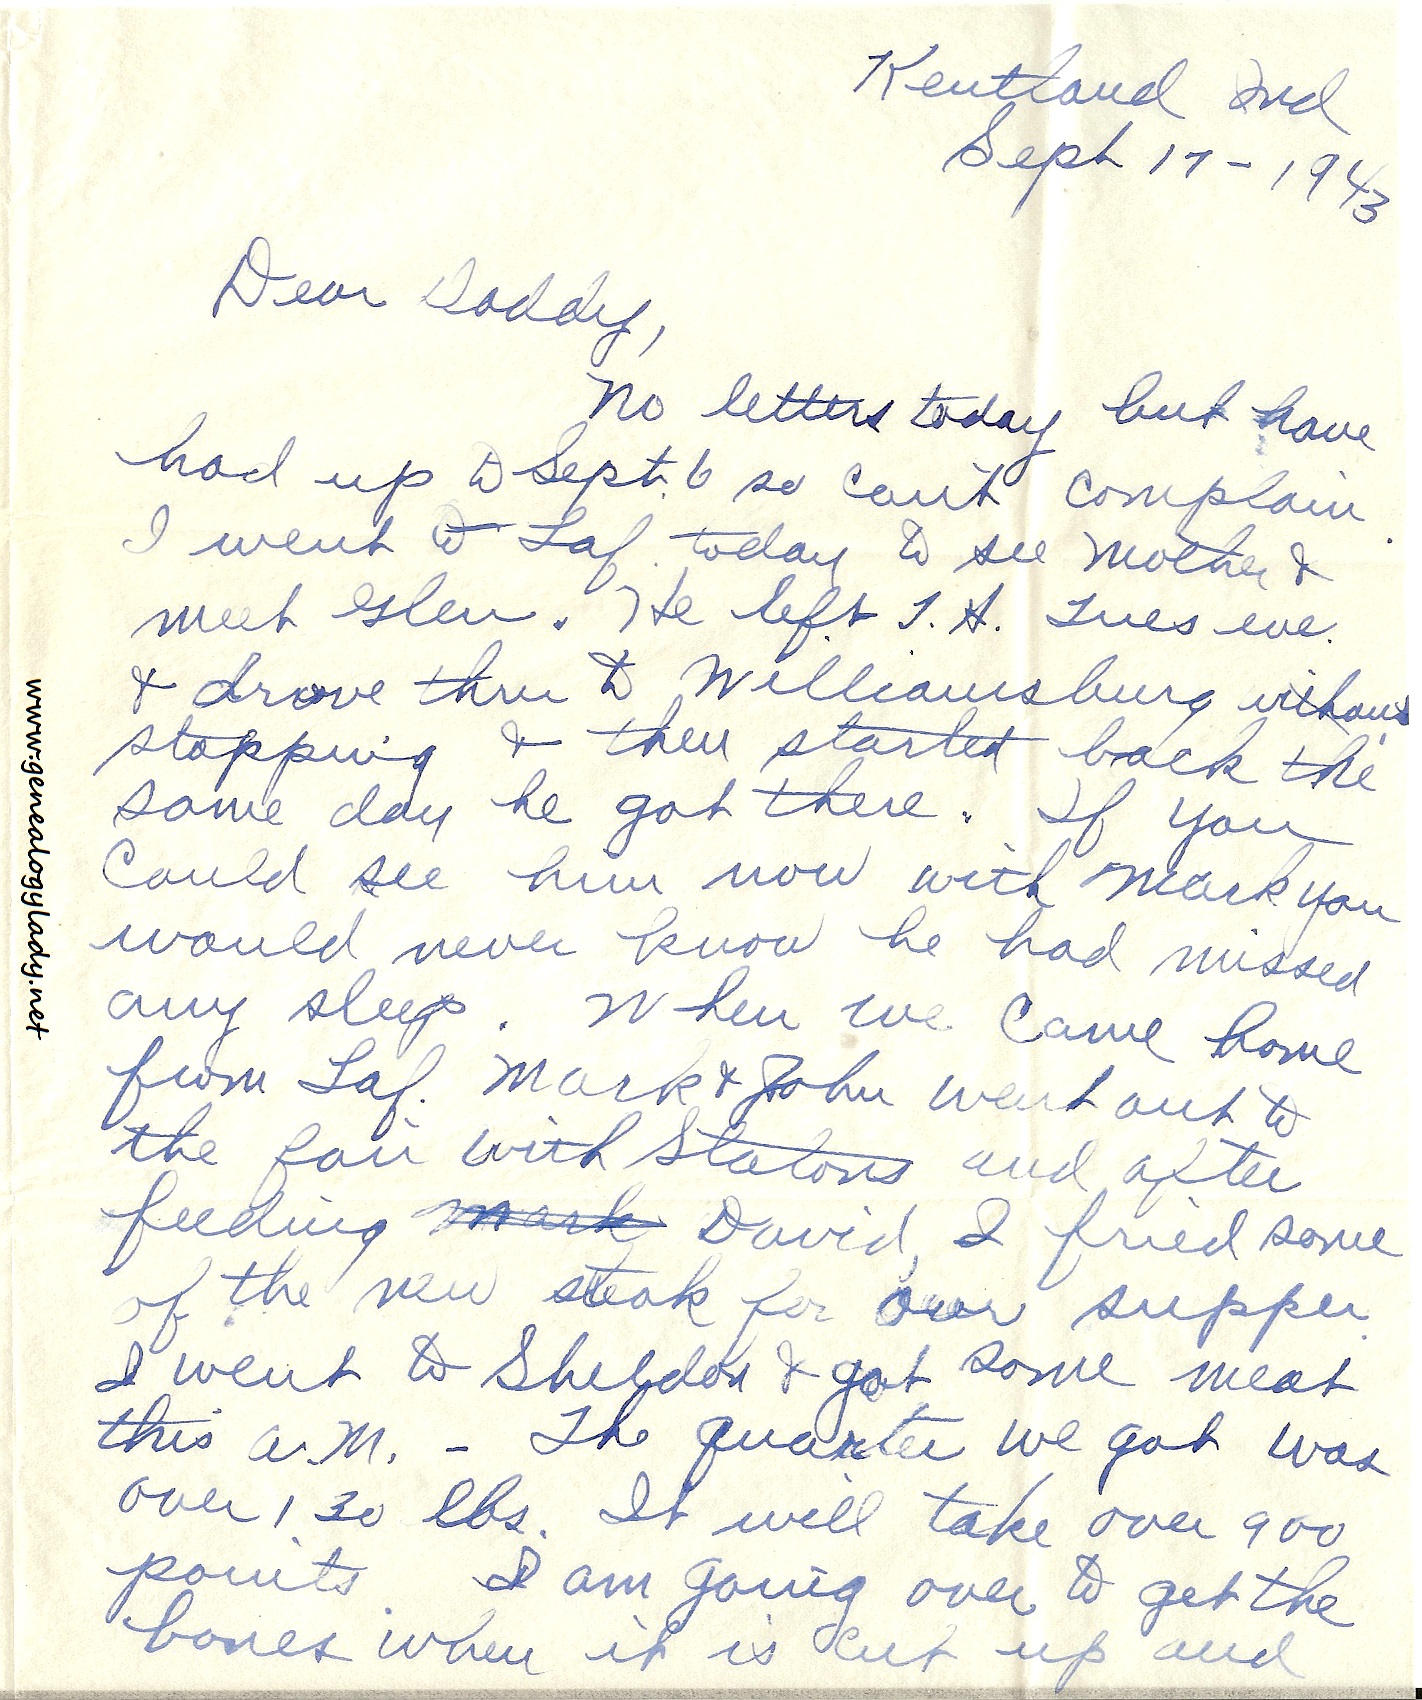 Kentland Ind
Sept 17 - 1943
Dear Daddy,
No letters today but have
had up to Sept. 6 so can't complain.
I went to Laf. today to see Mother &
meet Glen. He left T.H. Tues eve.
& drove thru to Williamsburg without
stopping & then started back the
same day he got there. If you
could see him now with Mark you
would never know he had missed
any sleep. When we came home
from Laf. Mark & John went out to
the fair with Statons and after
feeding Mark David, I fried some
of the new steak for our supper.
I went to Sheldon & got some meat
this a.m. - The quarter we got was
over 130 lbs. It will take over 900
points. I am going over to get the
bones when it is cut up and
www.genealogylady.net